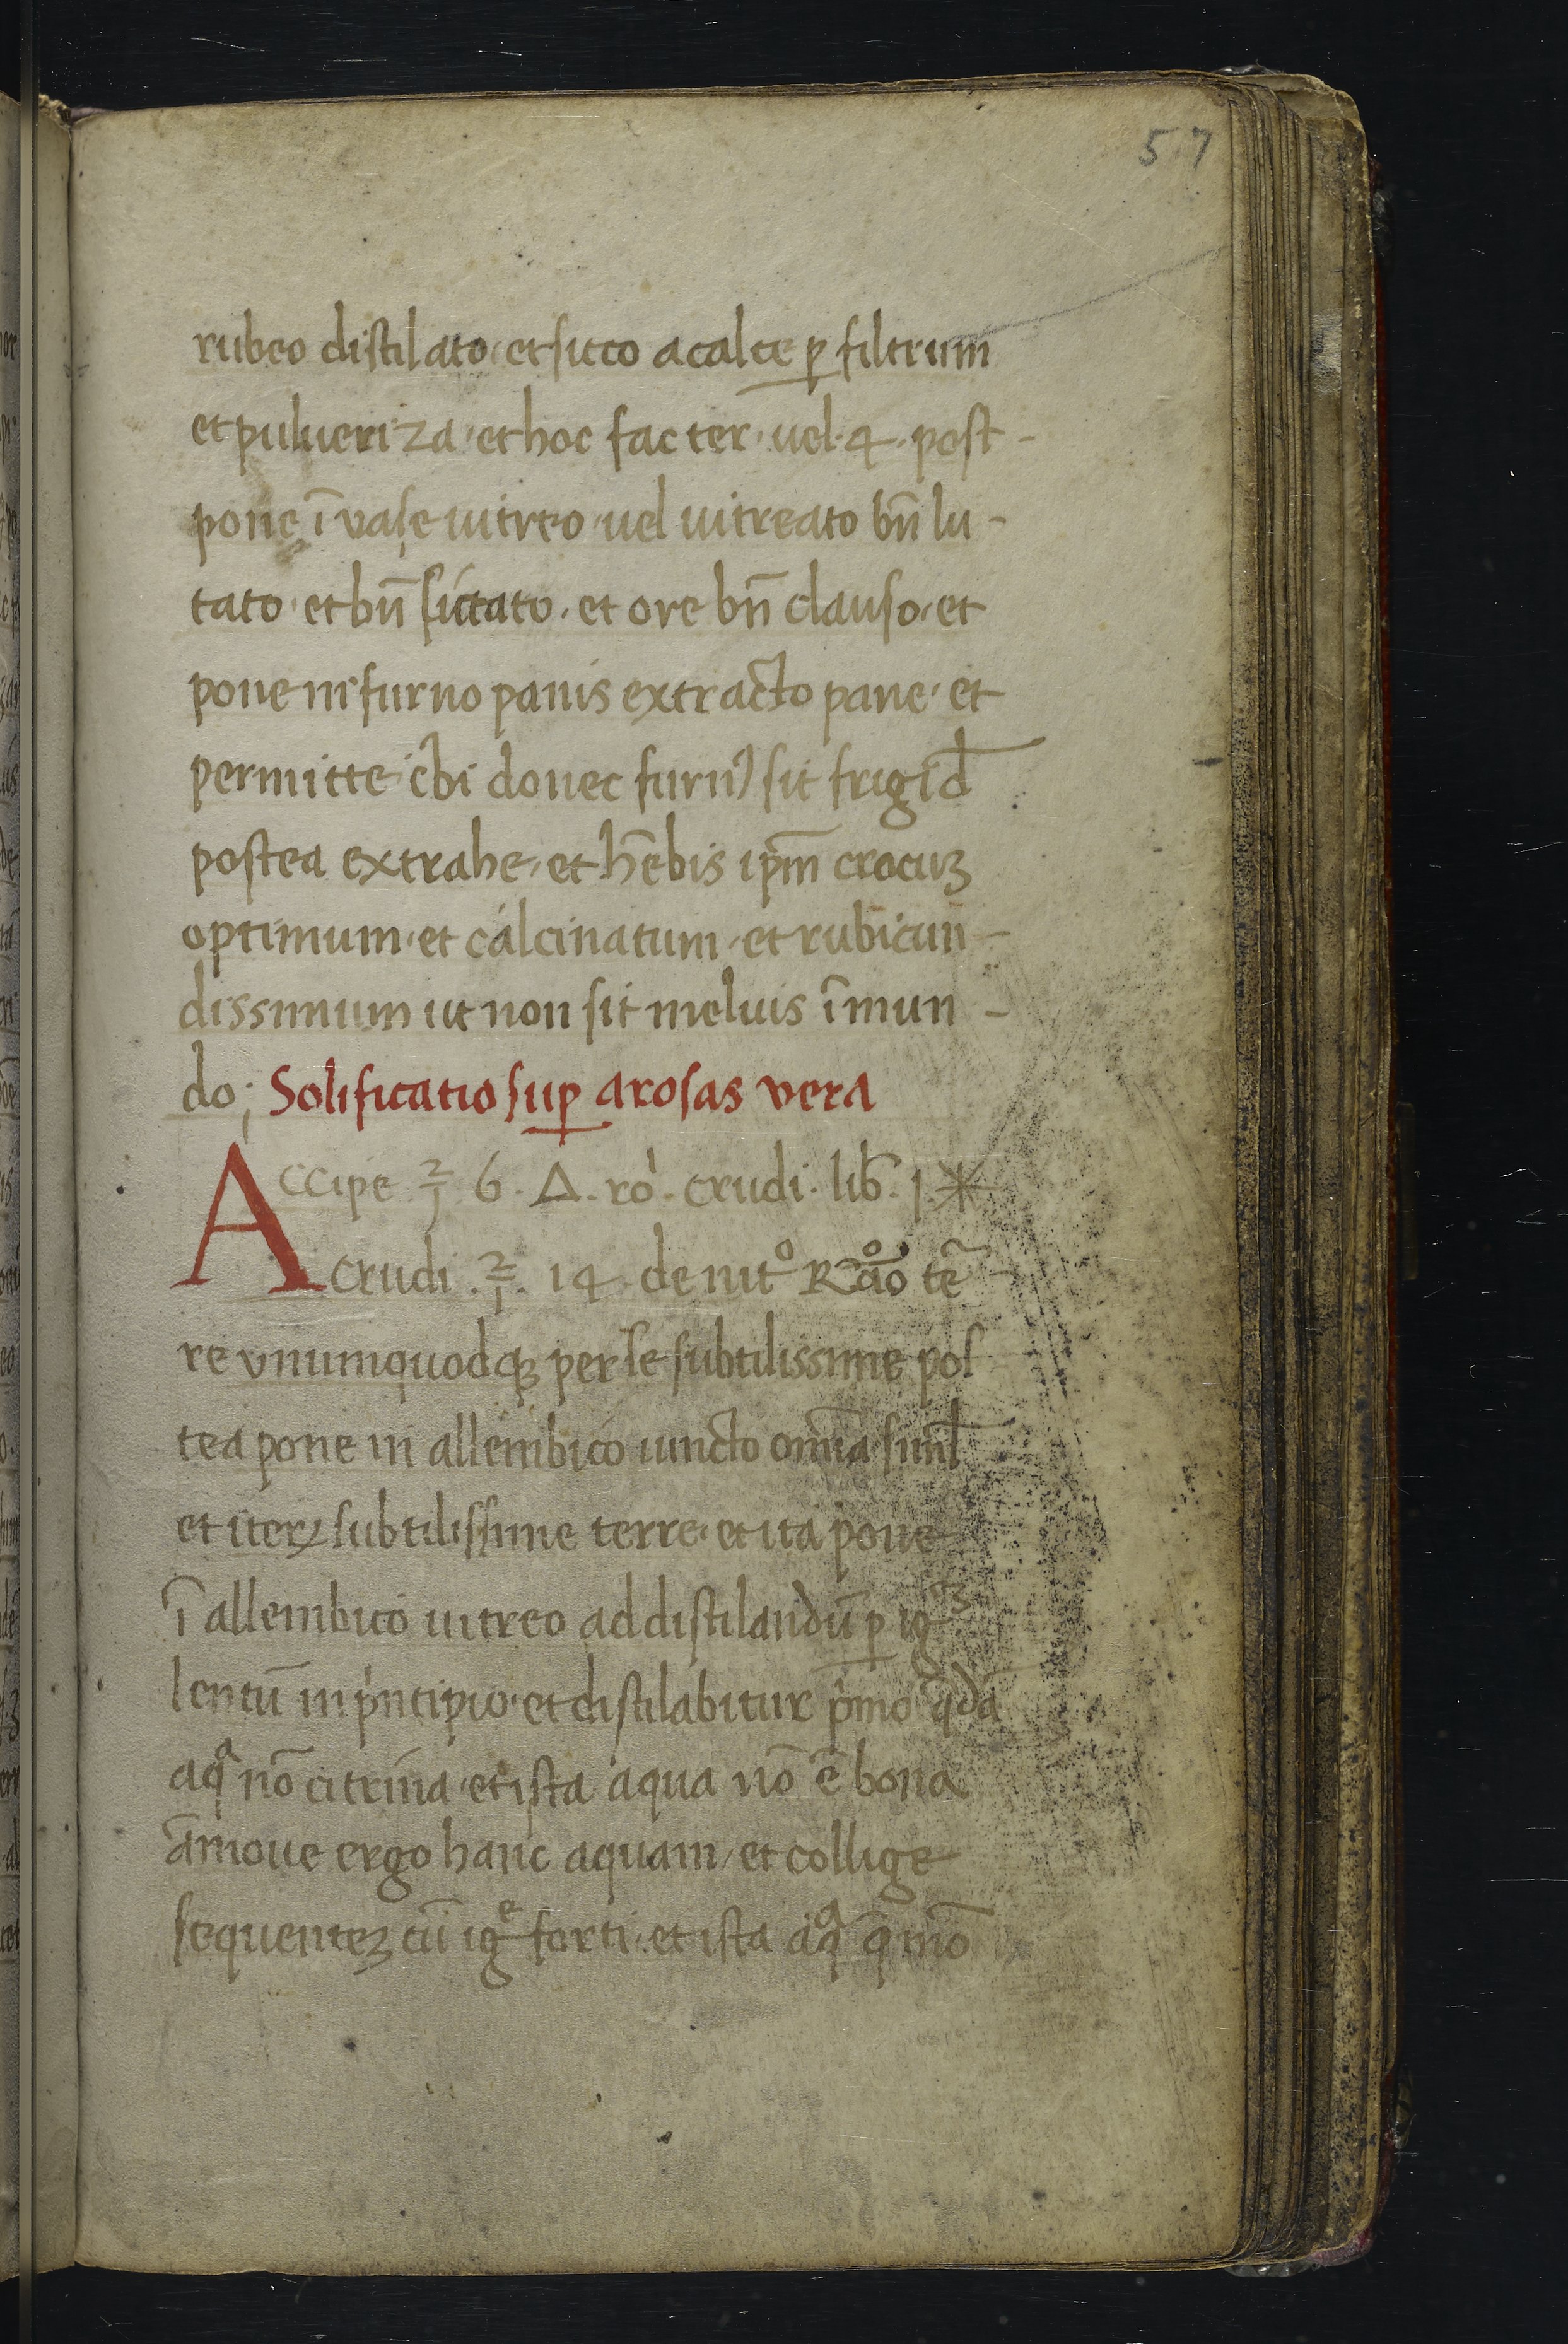 57
rubeo distilato et sicco a calce ꝑ filtrum
et pulueriza et hoc fac ter uel 4 post -
pone ī vase uitreo uel uitreato bn̄ lu -
tato et bn̄ siccato et ore bn̄ clauso et
pone in furno panis extracto pane et
permitte ībi donec furnꝰ sit frigid̄
postea extrahe et hēbis ip̄m crocuꝫ
optimum et calcinatum et rubicun -
dissimum ut non sit melius ī mun -
do; Solificatio suꝑ a rosas vera
Accipe ℥ 6 . Δ . ro . crudi . lib̄ . j ✳
crudi . ℥ . 14 de nitº te͂ -
re vnumquodqꝫ per se subtilissime pos
tea pone in allembico iuncto om̄ia siml̄
et iterꝝ subtilissime terre et ita pone
ī allembico uitreo ad distilandū ꝑ igᵌ
lentū in pͥncipio et distilabitur pͥmo q̄dā
aqͣ nō citrina et ista aqua nō ē bona
āmoue ergo hanc aquam et collige
sequenteꝫ cū igͤ forti et ista aqͣ q̄ mō